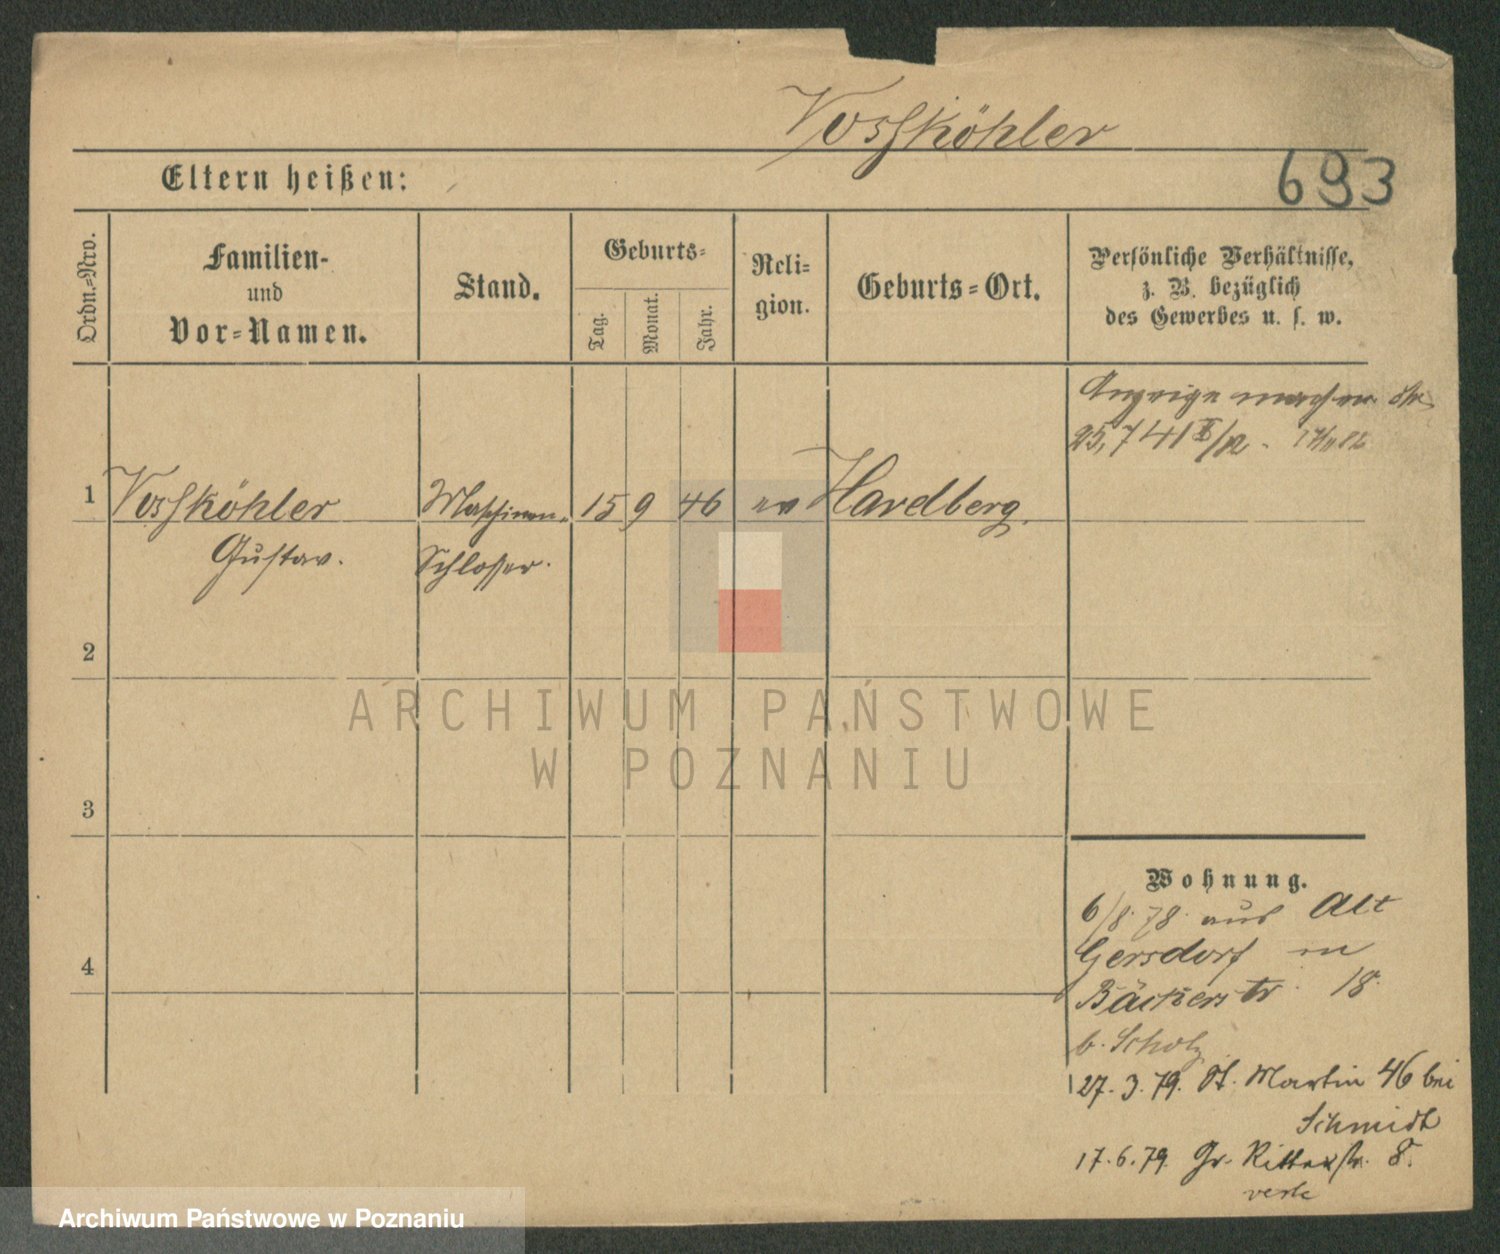 Vossköhler
Eltern heißen:
693
Ordn.=Nro.
Familien-
und
Vor=Namen.
Stand.
Geburts=
Tag.
Monat.
Jahr.
Reli=
gion.
Geburts=Ort.
Persönliche Verhältnisse,
z. B. bezüglich
des Gewerbes u. s. w.
Anzeige machen
25,741
1 Vossköhler Maschinen= 15 9 46 ev Havelberg.
Gustav. Schlosser.
2
3
4
Wohnung.
6/8. 78. aus Alt
Gersdorf in
Bäckerstr. 18.
b. Scholz
27. 3. 79. St. Martin 46 bei
Schmidt
17. 6. 79. Gr. Ritterstr. 8.
ARCHIWUM PAŃSTWOWE
W POZNANIU
Archiwum Państwowe w Poznaniu